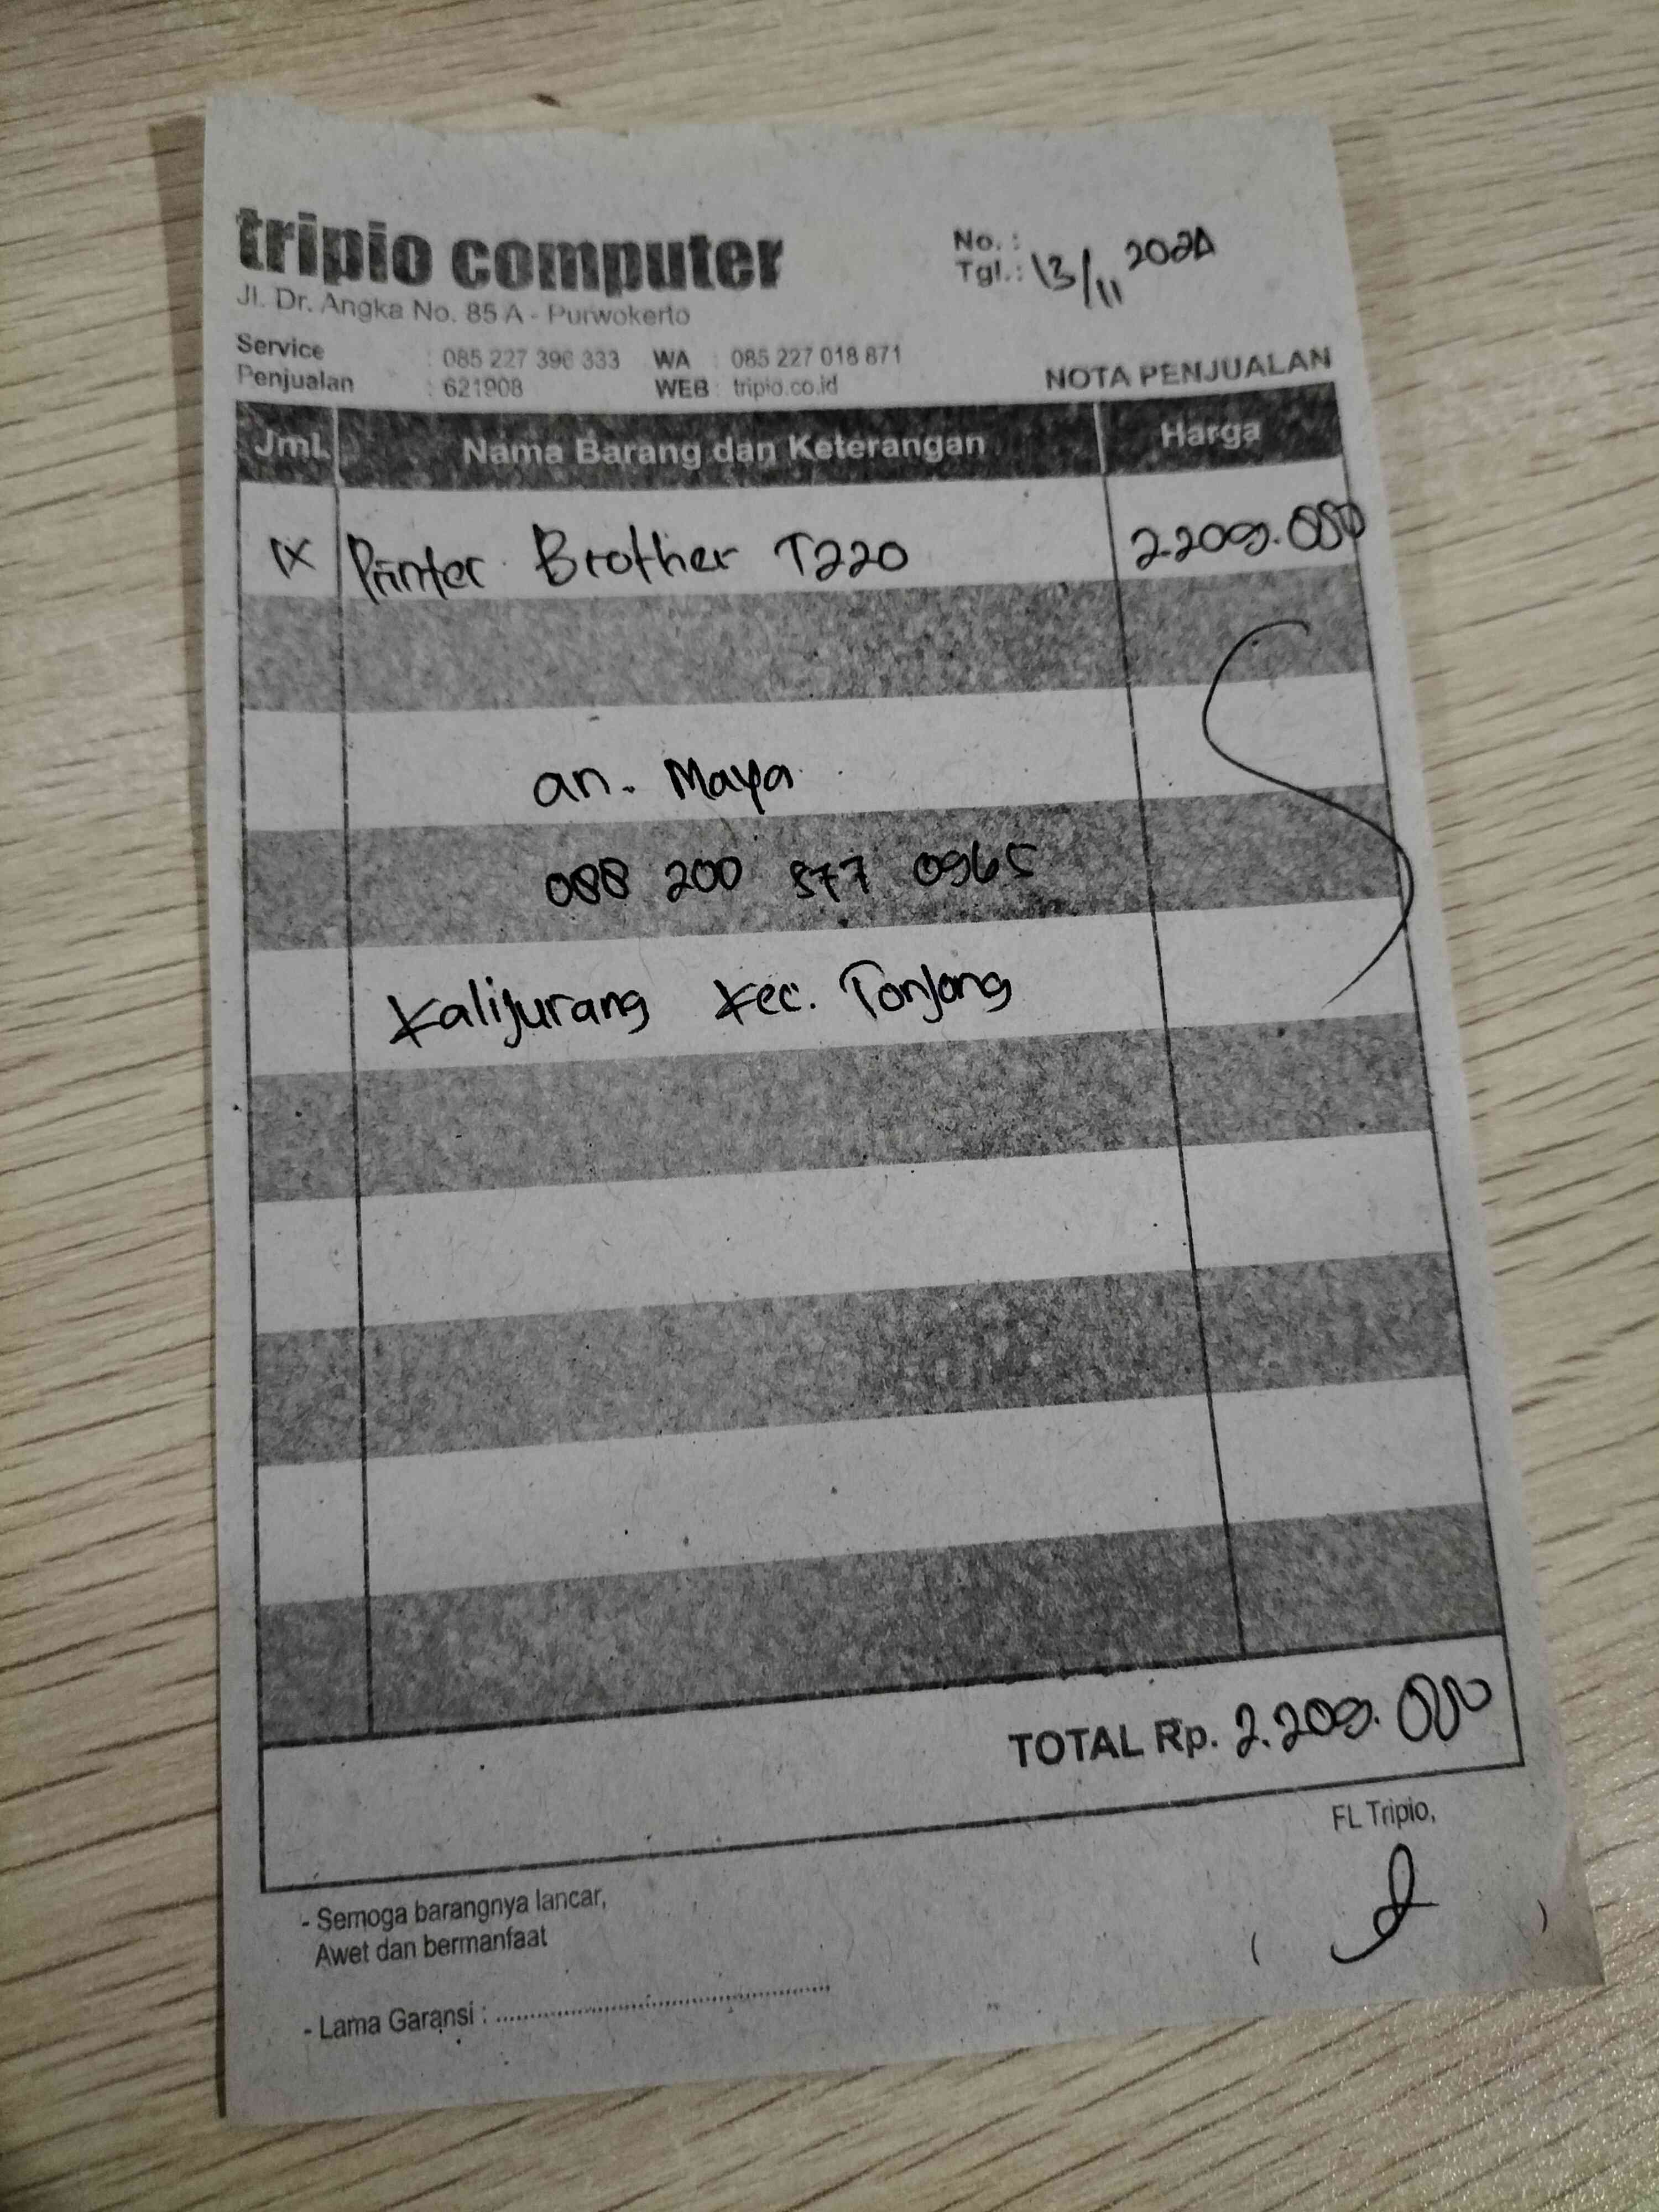 tripio computer
Jl. Dr. Angka No. 85 A - Purwokerto
No. :
Tgl. : 13/11 2020
Service : 085 227 396 333 WA : 085 227 018 871
Penjualan : 621908 WEB : tripio.co.id
NOTA PENJUALAN
Jml. Nama Barang dan Keterangan Harga
1x Printer Brother T220 2.200.000
an. Maya
088 200 877 0965
Kalijurang Kec. Tonjong
TOTAL Rp. 2.200.000
FL Tripio,
- Semoga barangnya lancar,
Awet dan bermanfaat
( )
- Lama Garansi : ................................................